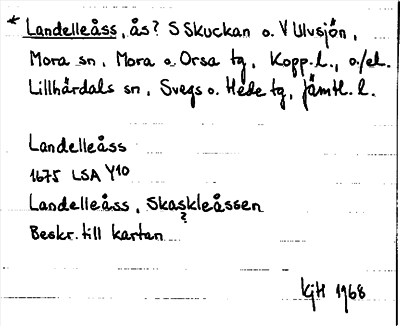 * Landelleåss, ås? S Skuckan o. V Ulvsjön,
Mora sn, Mora o Orsa tg, Kopp. l., o/el.
Lillhärdals sn, Svegs o. Hede tg, Jämtl. l.
Landelleåss
1675 LSA Y10
Landelleåss, Skaskleåssen
?
Beskr. till kartan
KjH 1968